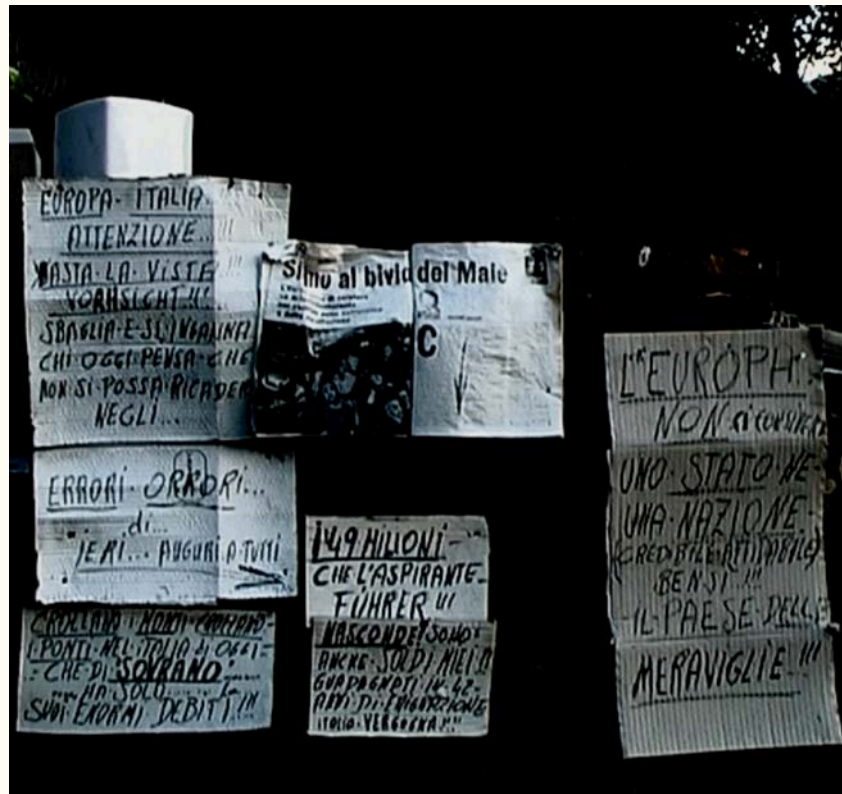 EUROPA. ITALIA.
ATTENZIONE...!!!
BASTA. LA. VISTE !!!
VORHSICHT !!!
SBAGLIA. E. SI. INGANNA
CHI OGGI. PENSA. CHE
NON SI. POSSA. RICADER
NEGLI...
ERRORI. ORRORI...
di...
IERI... AUGURI. A. TUTTI
CROLLANO I
I. PONTI. NEL. ITALIA di OGGI
CHE DI "SOVRANO"
HA. SOLO
SUOI. ENORMI DEBITI. !!!
Siamo al bivio del Male
C
I 49 MILIONI
CHE L'ASPIRANTE
FÜHRER !!!
NASCONDE SONO
ANCHE. SOLDI MIEI !!
GUADAGNATI IN 42
ANNI DI. EMIGRAZIONE
ITALIA. VERGOGNA !!!
L'EUROPA.
NON ci CONSIDERA
UNO. STATO. NE
UNA. NAZIONE
(CREDIBILE. AFFIDABILE)
BENSI !!!
IL PAESE. DELLE
MERAVIGLIE. !!!